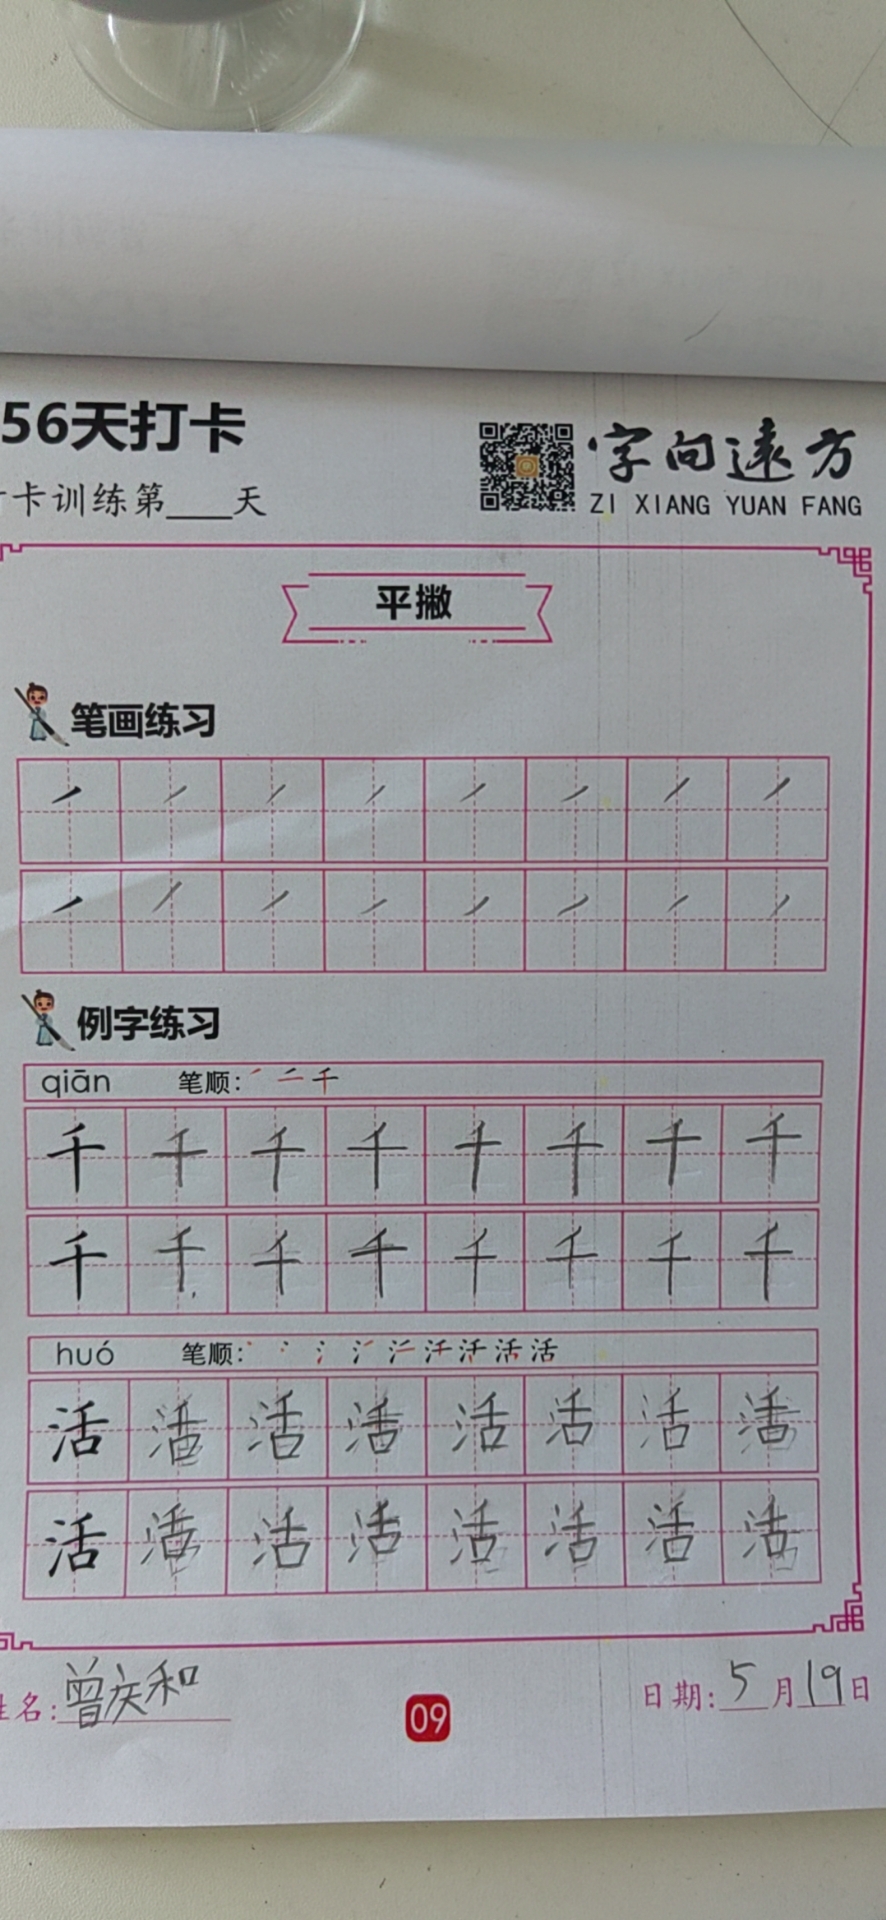 56天打卡
卡训练第____天
字向远方
ZI XIANG YUAN FANG
平撇
笔画练习
例字练习
qiān 笔顺:
千 千 千 千 千 千 千 千
千 千 千 千 千 千 千 千
huó 笔顺: 活 活
活 活 活 活 活 活 活 活
活 活 活 活 活 活 活 活
姓名:曾庆和
09
日期:5月19日